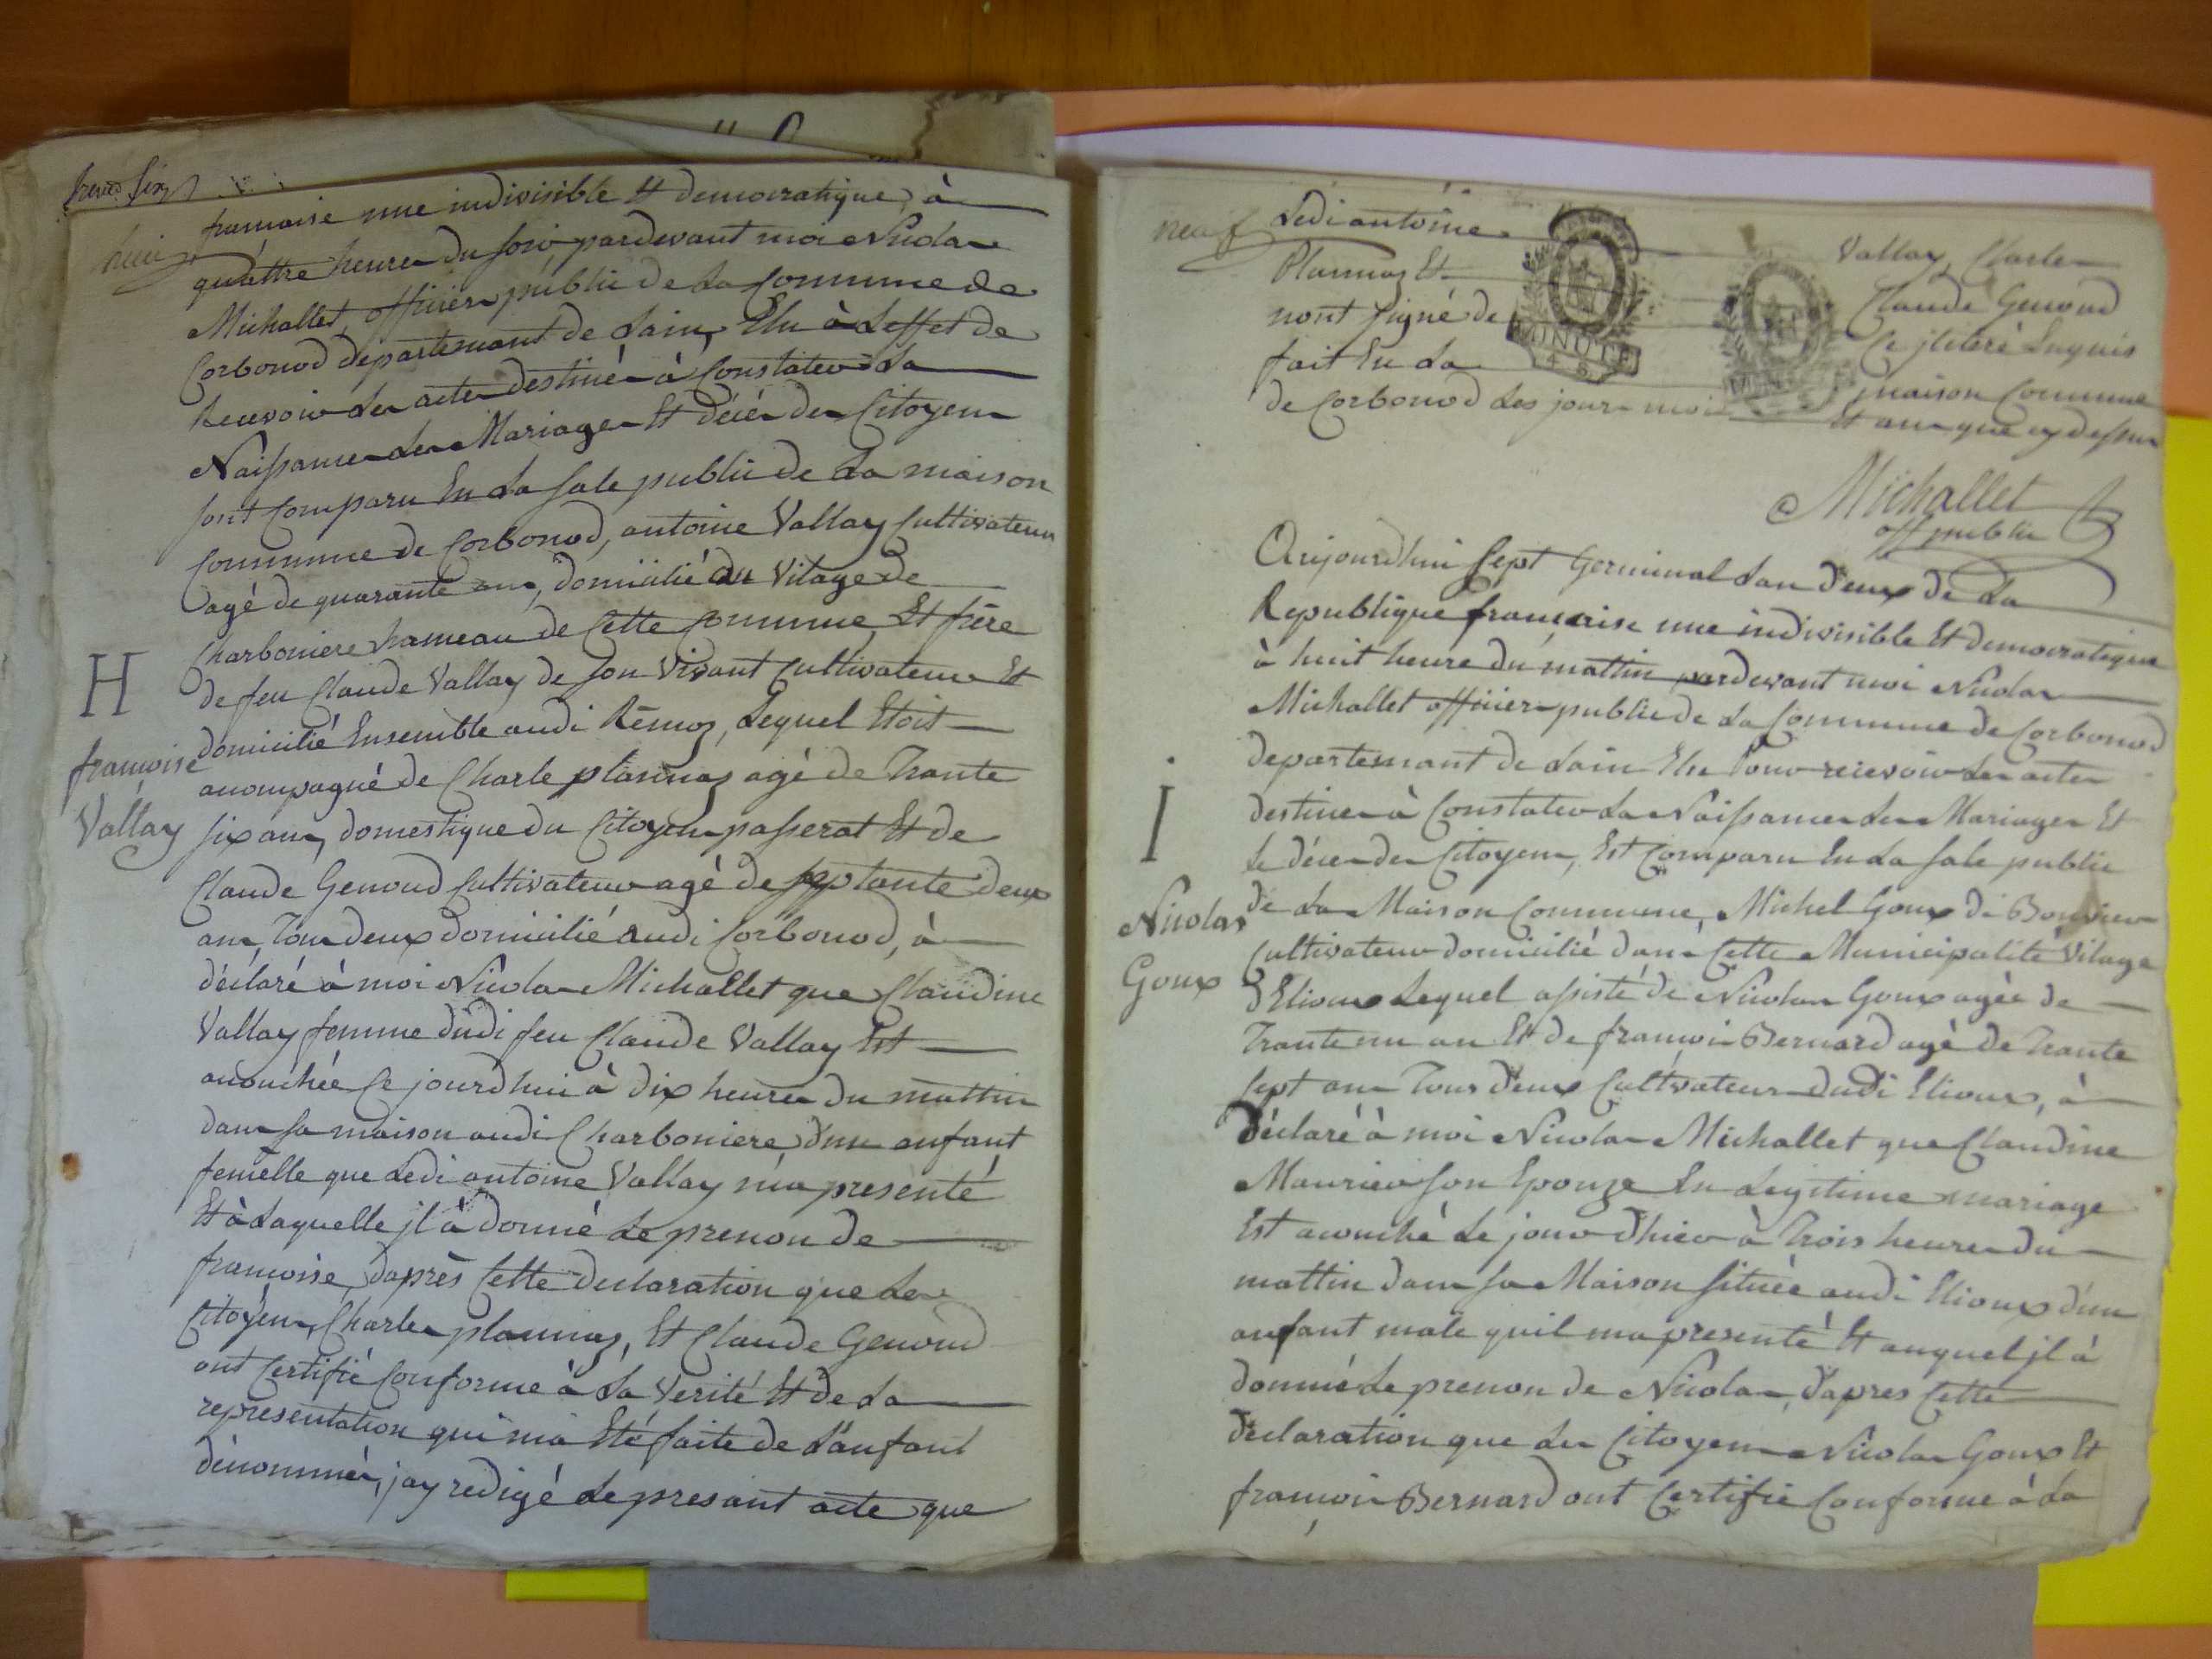 huit
francoise une indivisible Et democratique, à
quattre heures du soir, pardevant moi Nicolas
Michallet, officier public de La Commune de
Corbonod departemant de Lain, Elu à Leffet de
Recevoir Les actes destiné à Constater La
Naissance Les Mariages Et décés des Citoyens
sont Comparu En La sale public de La maison
Commune de Corbonod, antoine Vallay Cultivateur
agé de quarante ans, domicilié au Vilage de
Charboniere hameau de Cette Commune, Et frère
de feu Claude Vallay de son Vivant Cultivateur Et
domicilié Ensemble audi Rémoz, Lequel Etoit
acompagné de Charle plannaz agé de Trante
six ans, domestique du Citoyen passerat Et de
Claude Genoud Cultivateur agé de septante deux
ans, Tous deux domicilié audi Corbonod, à
déclaré à moi Nicolas Michallet que Claudine
Vallay femme dudi feu Claude Vallay Est
acouchée Ce jourdhui à dix heures du mattin
dans sa maison audi Charboniere d'un anfant
femelle que Ledi antoine Vallay m'a presènté
Et à Laquelle jl à donné Le prenon de
francoise, daprès Cette declaration que Les
Citoÿens, Charles plannaz, Et Claude Genoud
ont Certifié Conforme à La Verité Et de La
representation qui m'a Eté faite de L'anfant
dénommé, jay redigé Le presant acte que
H
francoise
Vallay
neuf
Ledi antoine Vallay, Charles
Plannaz Et Claude Genoud
nont signé de Ce jlitéré Enquis
fait En La maison Commune
de Corbonod Les jour mois Et an que cy dessus
MINUTE
Michallet
off public
Aujourdhui sept Germinal Lan deux de La
Republique francaise une indivisible Et democratique
à huit heure du mattin pardevant moi Nicolas
Michallet officier public de La Commune de Corbonod
departemant de Lain Elu Pour recevoir Les actes
destiner à Constater La Naissance Les Mariages Et
Le décés des Citoyens, Est Comparu En La sale public
de La Maison Commune, Michel Goux di
Cultivateur domicilié dans Cette Municipalité Vilage
d'Elioux Lequel assisté de Nicolas Goux agée de
Trante un an Et de francois Bernard agé de Trante
sept ans Tous deux Cultivateurs dudi Elioux, à
déclaré à moi Nicolas Michallet que Claudine
Maurier son Epouze En Legitime mariage
Est acouché Le jour dhier à Trois heures du
mattin dans sa Maison située audi Elioux d'un
anfant male quil ma presenté Et auquel jl à
donné Le prenon de Nicolas, dapres Cette
declaration que Les Citoyens Nicolas Goux Et
francois Bernard ont Certifié Conforme à La
I
Nicolas
Goux